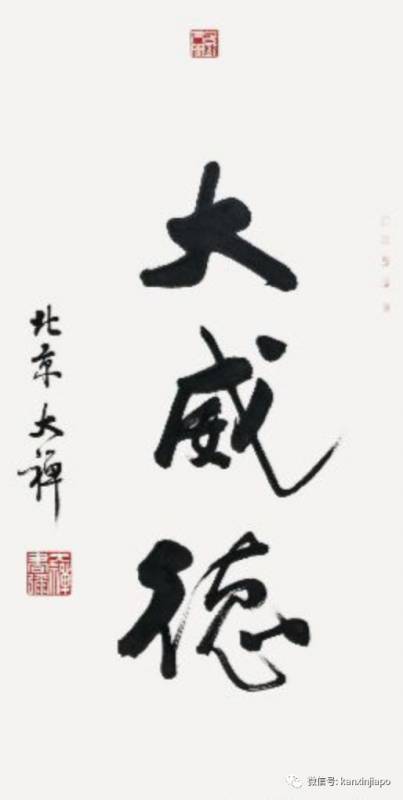 大威德
北京大禅
微信号: kanxinjiapo